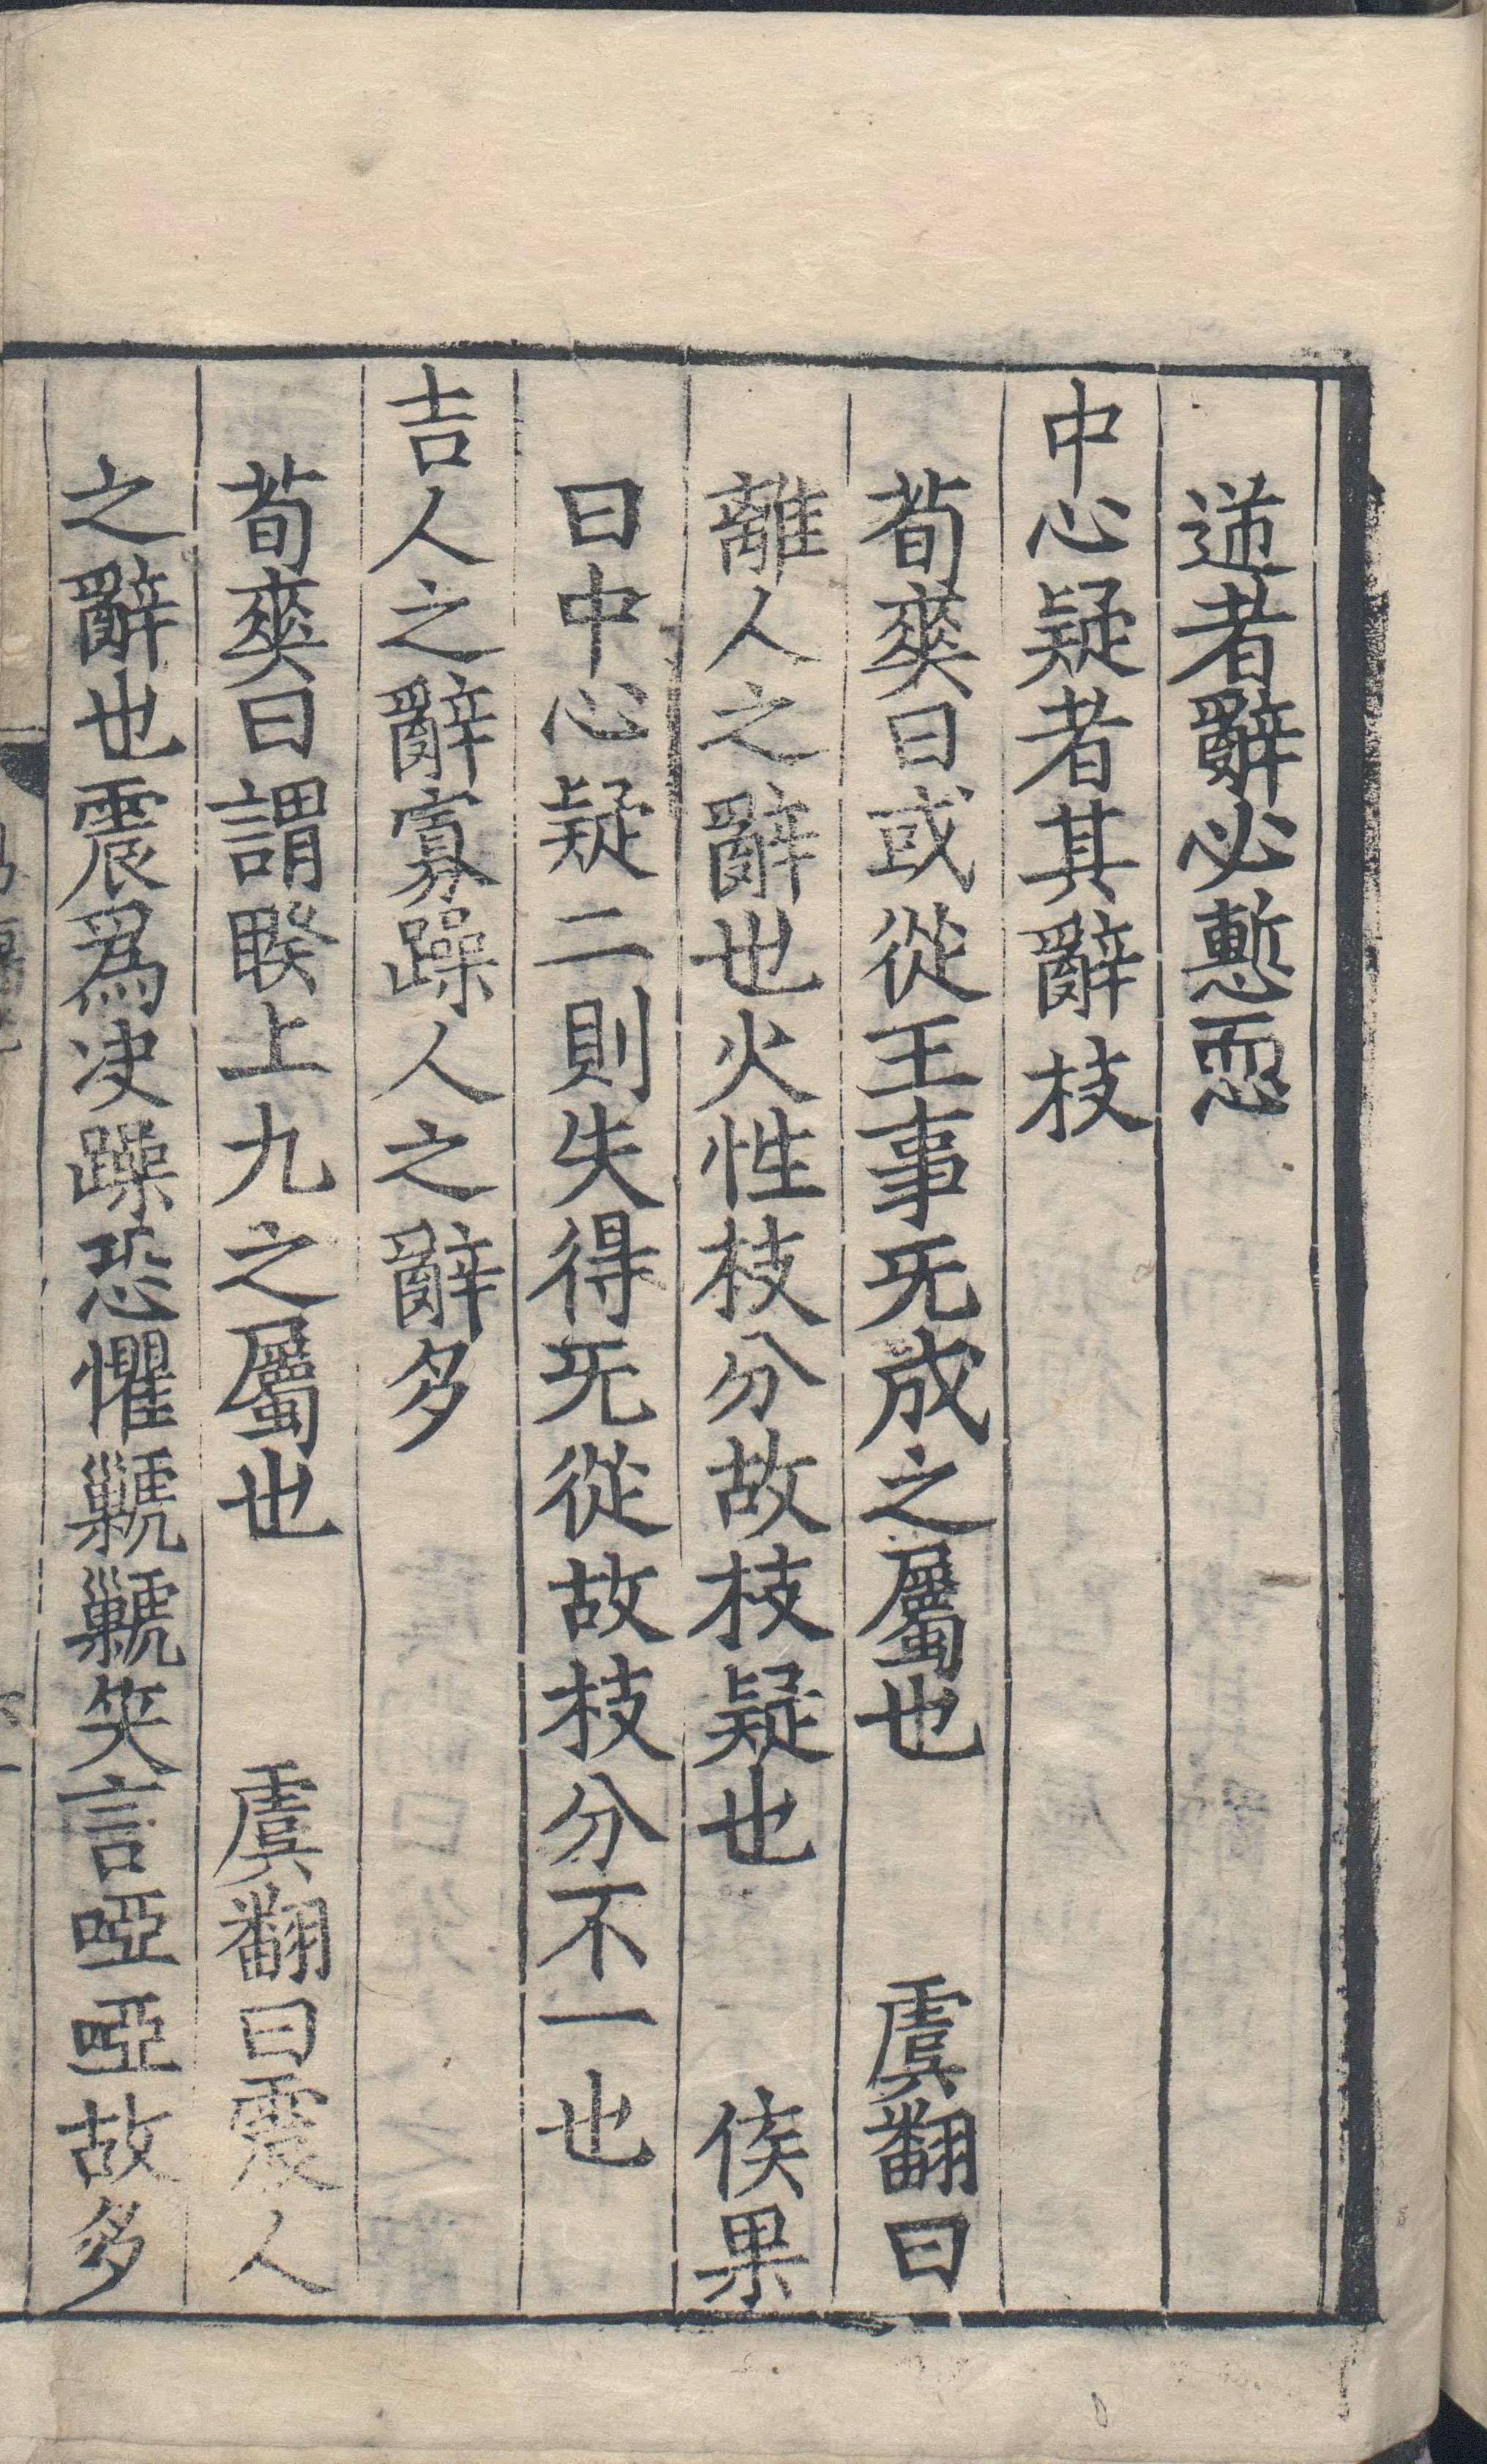 逆者辭必慙恧
中心疑者其辭枝
荀爽曰或從王事无成之屬也 虞翻曰
離人之辭也火性枝分故枝疑也 侯果
曰中心疑二則失得无從故枝分不一也
吉人之辭寡躁人之辭多
荀爽曰謂睽上九之屬也 虞翻曰震人
之辭也震爲决躁恐懼虩虩笑言啞啞故多